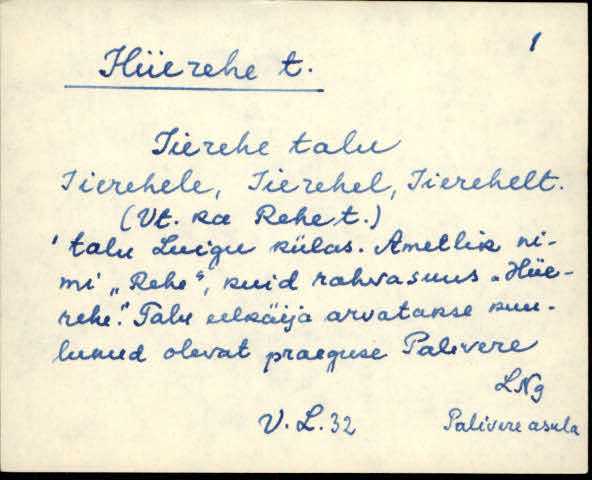 1
Hüerehe t.
Iierehe talu
Iierehele, Iierehel, Iierehelt.
(Vt. ka Rehe t.)
' talu Luigu külas. Ametlik ni-
mi „Rehe", kuid rahvasuus „Hüe-
rehe." Talu eelkäija arvatakse kuu-
lunud olevat praeguse Palivere
LNg
V. L. 32 Palivere asula